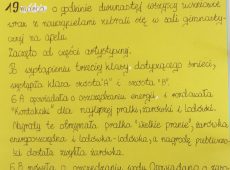 19 marca o godzinie dwunastej wszyscy uczniowie
wraz z nauczycielami zebrali się w sali gimnasty-
cznej na apelu.
Zaczęto od części artystycznej.
Po wystąpieniu trzeciej klasy dotyczącego śmieci,
wystąpiła klasa szósta "A" i szósta "B".
6 A opowiadała o oszczędzaniu energii i rozdawała
"Kontakaki" dla najlepszej pralki, żarówki i lodówki.
Nagrody te otrzymała pralka "Wielkie pranie", żarówka
energooszczędna i lodówka-lodówka, a nagrodę publiczno-
ści dostała zwykła żarówka.
6 B mówiła o oszczędzaniu wody. Opowiadano o